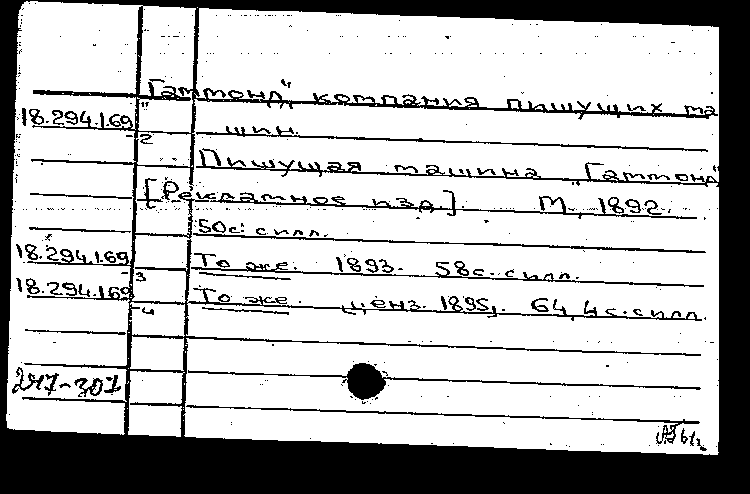 "Гаммонд", компания пишущих ма
18.294.1.69
-2
шин.
Пишущая машина "Гаммонд"
[Рекламное изд.] М., 1892.
50с. с илл.
18.294.1.69
-3
То же. 1893. 58с. с илл.
18.294.1.69
-4
То же. ценз. 1895, 64, 4с. с илл.
247-307